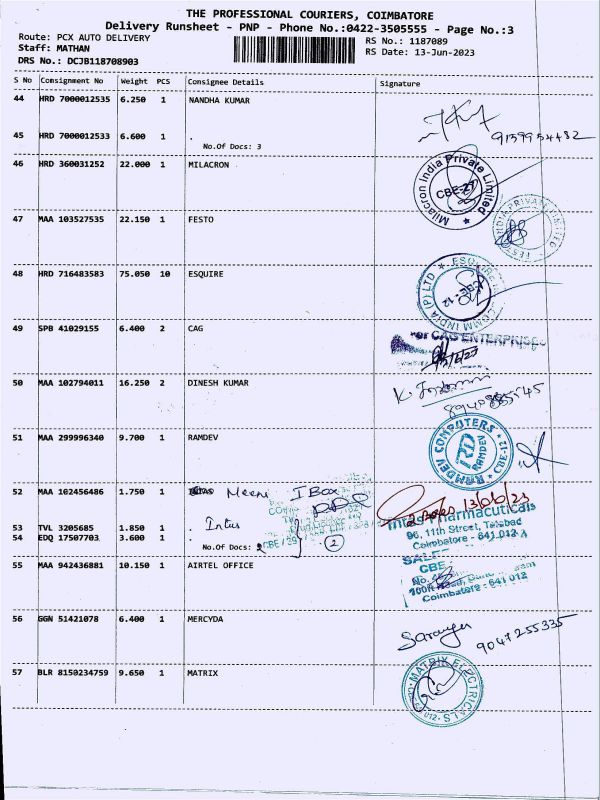 THE PROFESSIONAL COURIERS, COIMBATORE
Delivery Runsheet - PNP - Phone No.:0422-3505555 - Page No.:3
Route: PCX AUTO DELIVERY
RS No.: 1187089
Staff: MATHAN
RS Date: 13-Jun-2023
DRS No.: DCJB118708903
S No Consignment No Weight PCS Consignee Details Signature
44 HRD 7000012535 6.250 1 NANDHA KUMAR
45 HRD 7000012533 6.600 1 .
No.Of Docs: 3
9159954482
46 HRD 360031252 22.000 1 MILACRON
Milacron India Private Limited
CBE-27
47 MAA 103527535 22.150 1 FESTO
FESTO INDIA PRIVATE LIMITED
48 HRD 716483583 75.050 10 ESQUIRE
ESQUIRE
COMM INDIA (P) LTD
CBE-12
49 SPB 41029155 6.400 2 CAG
For CAG ENTERPRISES
50 MAA 102794011 16.250 2 DINESH KUMAR
51 MAA 299996340 9.700 1 RAMDEV
RAMDEV COMPUTERS CBE-12
RD
RAMDEV
52 MAA 102456486 1.750 1 Meeni I Box
13/06/23
53 TVL 3205685 1.850 1 . Intus
54 EDQ 17507703 3.600 1
No.Of Docs: 2
2
Pharmaceuticals
96, 11th Street, Tatabad
Coimbatore - 641 012
55 MAA 942436881 10.150 1 AIRTEL OFFICE
CBE
100ft Road,
Coimbatore - 641 012
56 GGN 51421078 6.400 1 MERCYDA
9047255335
57 BLR 8150234759 9.650 1 MATRIX
MATRIX ELECTRICALS